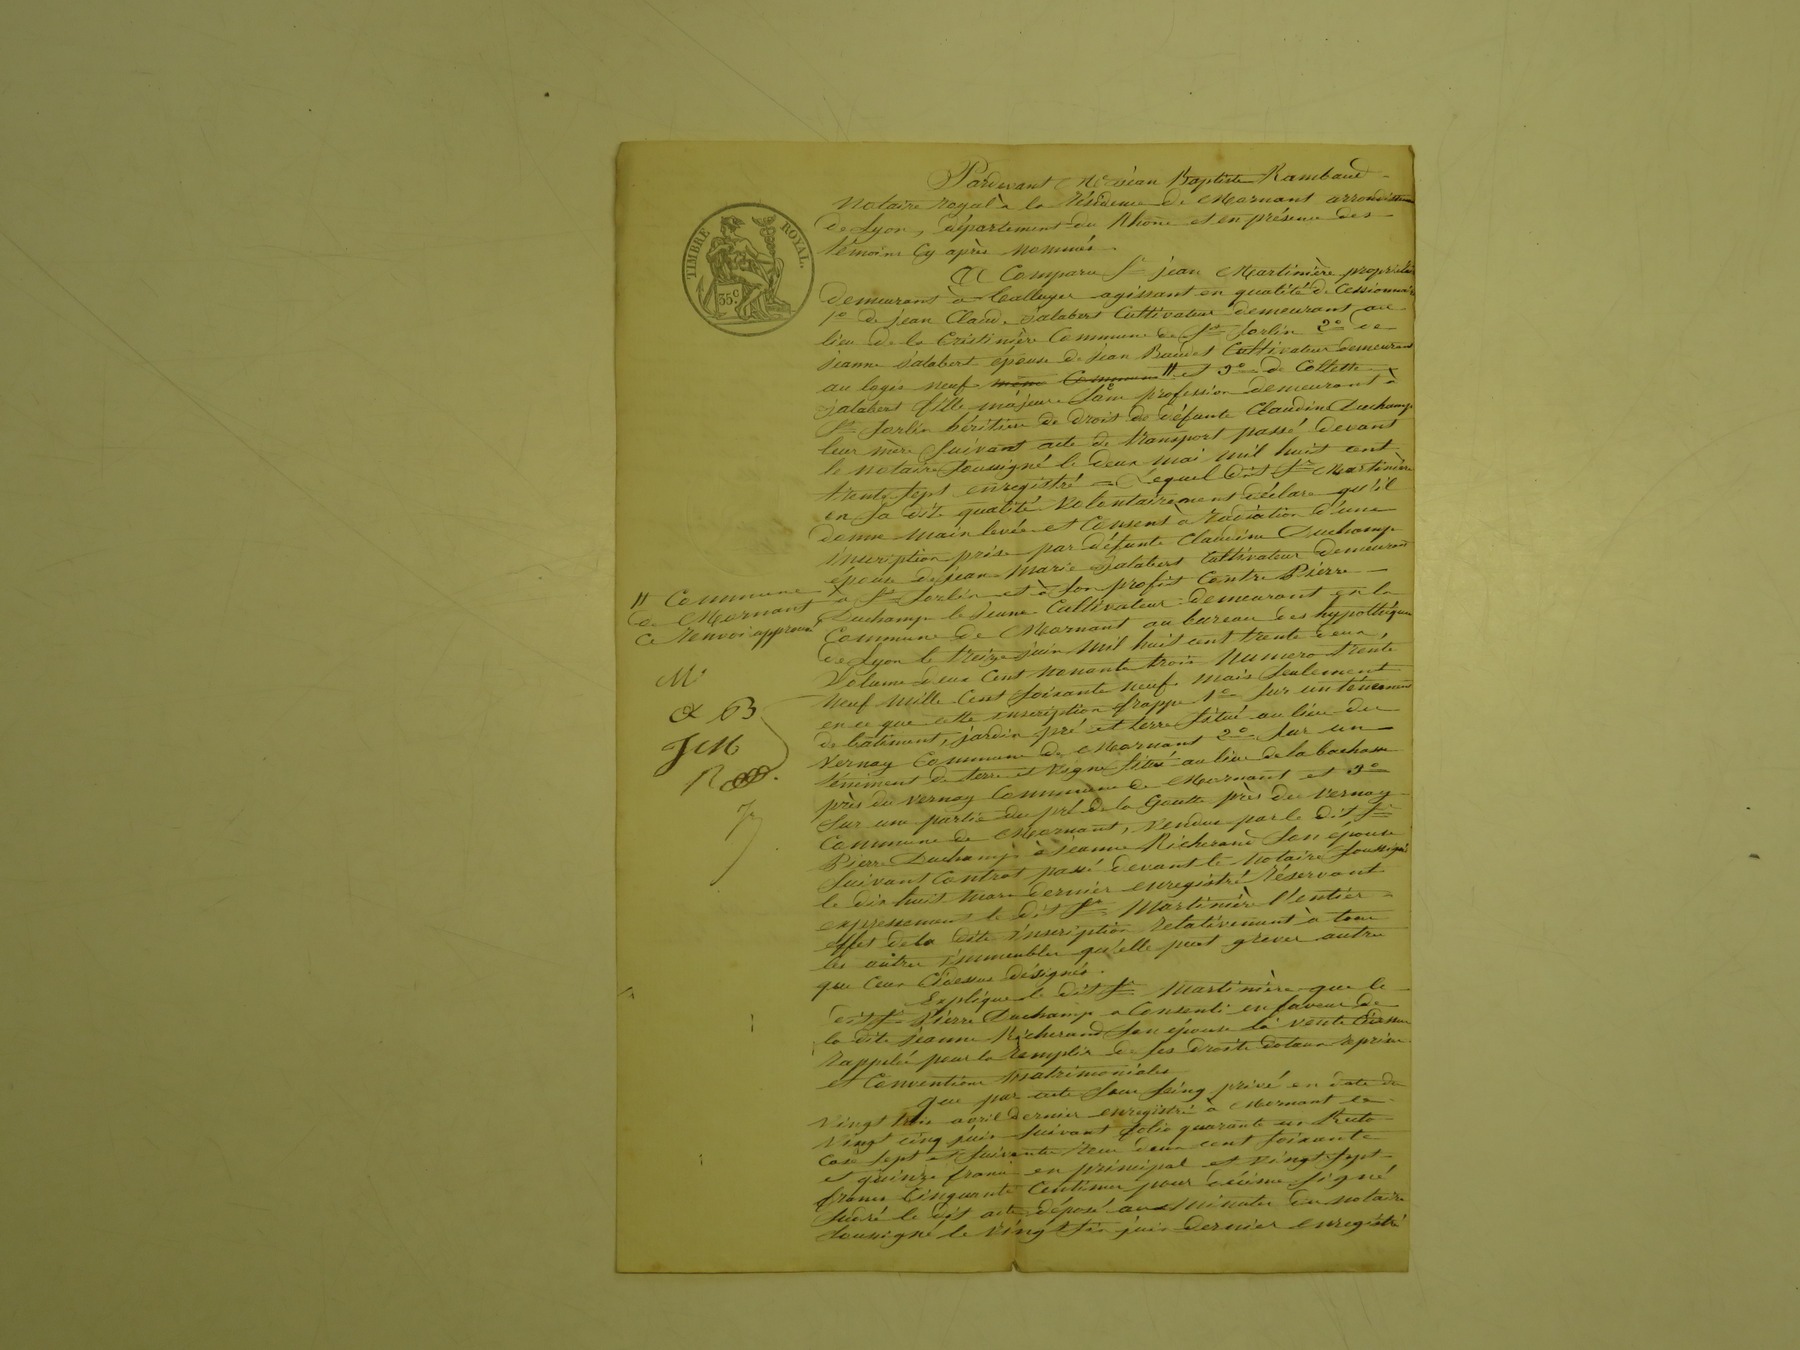 TIMBRE ROYAL.
35 c
Pardevant Me Jean Baptiste Rambaud
Notaire royal à la résidence de Mornant arrondissem
de Lyon, département du Rhône et en présence des
témoins cy après nommés.
A Comparu Sr jean Martinière propriétaire
demeurant à agissant en qualité de Cessionnaire
1o de jean Claude jalabert Cultivateur demeurant au
lieu de la Commune de St Sorlin 2o de
jeanne jalabert épouse de jean Cultivateur demeurant
au logis neuf même Commune # et 3o de Collette
jalabert fille majeure sans profession demeurant à
St Sorlin héritiers de droit de défunte Claudine Duchamp
leur mère suivant acte de transport passé devant
le Notaire soussigné le deux mai mil huit cent
trente sept enregistré = Lequel dit Sr Martinière
en sa dite qualité Volontairement déclare qu'il
donne main levée et Consent à radiation d'une
inscription prise par défunte Claudine Duchamp
épouse de jean Marie jalabert Cultivateur demeurant
à St Sorlin et à son profit Contre Pierre
Duchamp le jeune Cultivateur demeurant en la
Commune de Mornant au bureau des hypothèques
de Lyon le treize juin mil huit cent trente deux,
Volume deux Cent nonante trois Numero trente
neuf mille Cent soixante neuf mais seulement
en ce que cette inscription frappe 1o sur un ténement
de bâtiment, jardin pré et terre situé au lieu du
Vernay Commune de Mornant 2o sur un
ténement de terre et Vigne situé au lieu de la bachasse
près du Vernay Commune de Mornant et 3o
sur une partie du pré de la Goutte près du Vernay
Commune de Mornant, Vendus par le dit Sr
Pierre Duchamp à jeanne Richerand son épouse
suivant Contrat passé devant le Notaire soussigné
le dix huit mars dernier enregistré réservant
expressement le dit Sr Martinière l'entier
effet de la dite inscription relativement à tous
les autres immeubles qu'elle peut grever autres
que Ceux Cidessus désignés.
Explique le dit Sr Martinière que le
dit Sr Pierre Duchamp a Consenti en faveur de
la dite jeanne Richerand son épouse la vente Cidessus
rappelée pour la remplir de ses droits dotaux reprises
et Conventions matrimoniales
que par acte sous seing privé en date du
Vingt trois avril dernier enregistré à Mornant le
Vingt cinq juin suivant folio quarante un recto
Case sept et suivantes reçu deux cent soixante
et quinze francs en principal et Vingt sept
francs Cinquante Centimes pour décime signé
le dit acte déposé aux Minutes du notaire
soussigné le Vingt six juin dernier enregistré
# Commune
de Mornant
Ce renvoi approuvé
M
B
JM
R